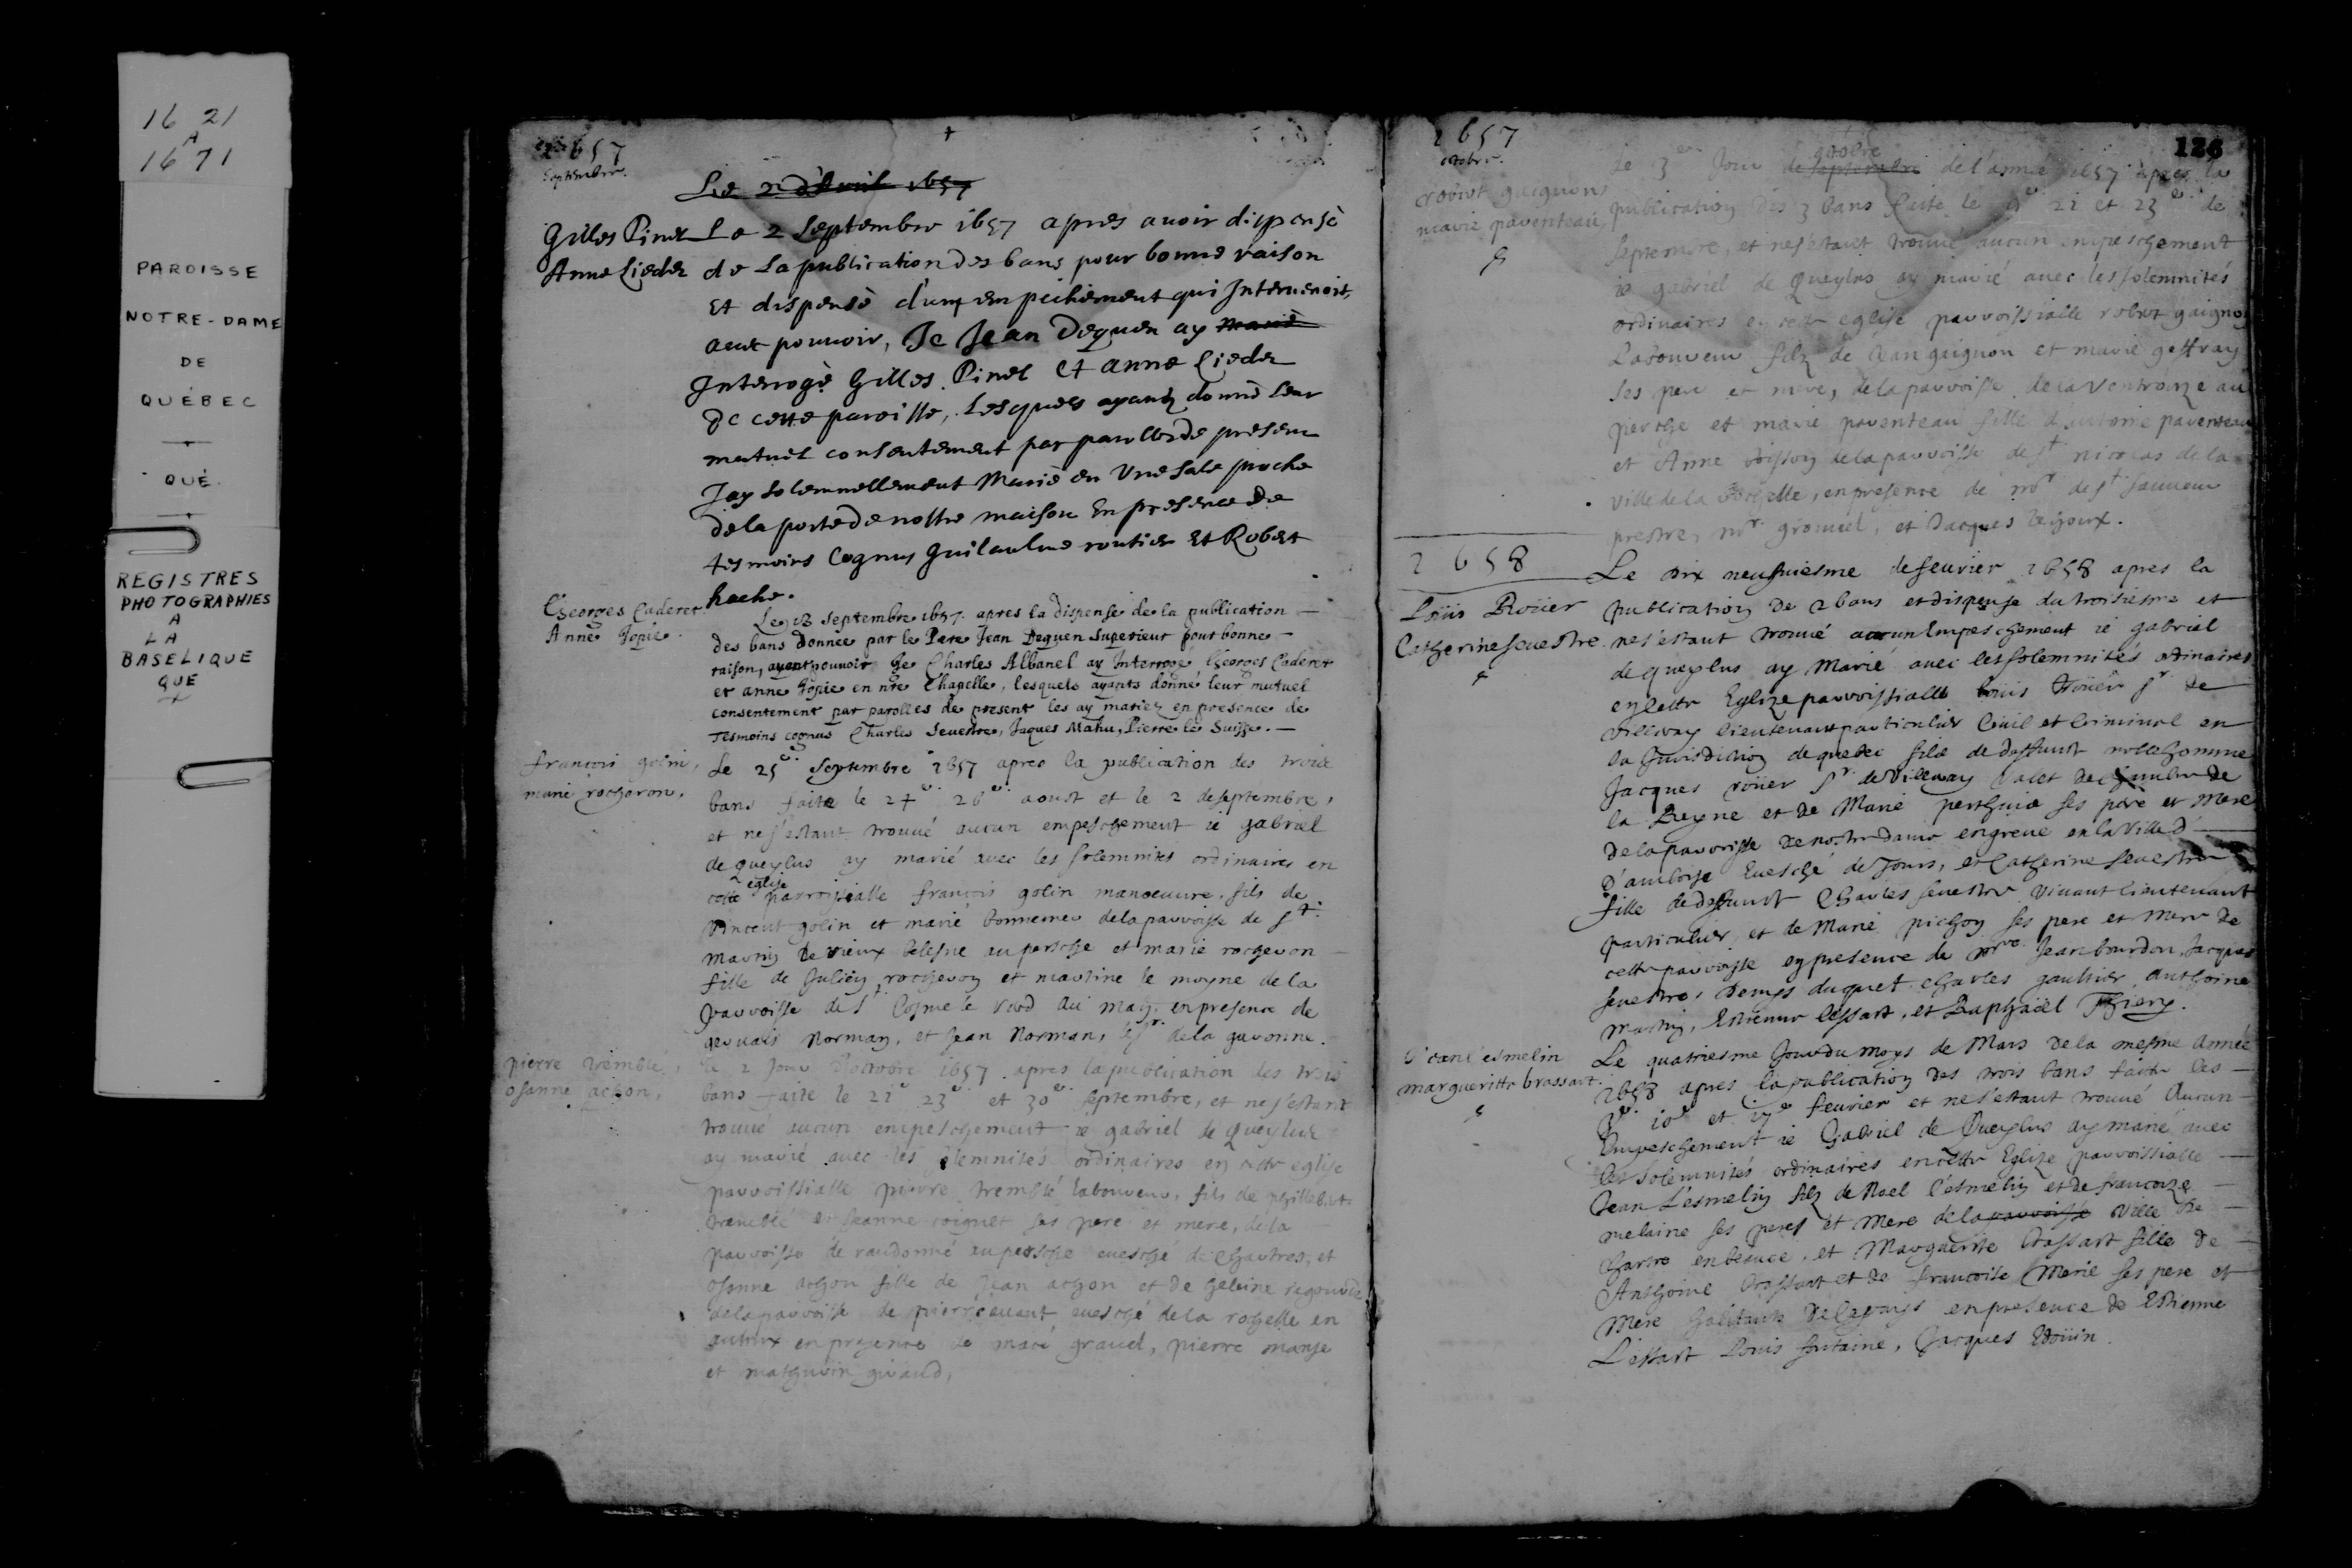 16 21
A
16 71
PAROISSE
NOTRE-DAME
DE
QUÉBEC
QUÉ.
REGISTRES
PHOTOGRAPHIES
A
LA
BASELIQUE
QUE
1657
Septembre.
Le 2 d'Avril 1657
Gilles Pinel
Anne Lieder
Le 2 Septembre 1657 apres avoir dispensé
de La publication des bans pour bonne raison
Et dispensé d'un empechement qui Intervenoit,
avec pouvoir, Je Jean Dequen ay marié
Interrogé Gilles Pinel Et Anne Lieder
De cette paroisse, Lesquels ayantz donné leur
mutuel consentement par parolles de present
J'ay solemnellement Marié en Une sale proche
de la porte de nostre maison En presence de
tesmoins Cognus Guilaulme routier Et Robert
hache.
Georges Caderet
Anne Jopie.
Le 18 Septembre 1657. apres la dispense de la publication
des bans donnée par le Pere Jean Dequen Superieur pour bonne
raison, ayant pouvoir Je Charles Albanel ay Interrogé Georges Caderet
et anne Jopie en nre Chapelle, lesquels ayants donné leur mutuel
consentement par parolles de present les ay mariez en presence de
Tesmoins cognus Charles Sevestre, Jaques Mahu, Pierre le Suisse.
françois golin,
marie rocheron,
Le 25e Septembre 1657 apres la publication des trois
bans faite le 24e 26e aoust et le 2 de septembre,
et ne s'estant trouvé aucun empeschement ie gabriel
de queylus ay marié avec les solemnites ordinaires en
cette eglise parroissialle françois golin manoeuvre, fils de
Vincent golin et marie bonnemer de la parroisse de St.
martin de vieux belesme au persche et marie rocheron
fille de Julien rocheron et martine le moyne de la
parroisse de St Cosme le verd au mayne en presence de
gervais Norman, et Jean Norman, de la garenne.
pierre tremblé,
osanne achon,
le 2 Jour d'octobre 1657 apres la publication des trois
bans faite le 21e 23e et 30e septembre, et ne s'estant
trouvé aucun empeschement ie gabriel de queylus
ay marié avec les solemnités ordinaires en cette eglise
parroissialle pierre tremblé laboureur, fils de phillebert
tremblé et Jeanne coignet ses pere et mere, de la
parroisse de randonné au persche evesché de Chartres, et
osanne achon fille de Jean achon et de helene regourde
de la parroisse de evesché de la rochelle en
aulnix en presence de macé gravel, pierre
et mathurin giraud,
1657
octobre
126
robert gaignon
marie parenteau
Le 3e Jour de septembre octobre de l'année 1657 apres la
publication des 3 bans faite le 21 et 23e de
septembre, et ne s'estant trouvé aucun empeschement
ie gabriel de Queylus ay marié avec les solemnités
ordinaires en cette eglise parroissialle robert gaignon
Laboureur filz de Jean gaignon et marie geffray
ses pere et mere, de la parroisse de la Ventrouze au
persche et marie parenteau fille d'antoine parenteau
et Anne poisson de la parroisse de St nicolas de la
ville de la Rochelle, en presence de mr de St sauveur
prestre, mr et Jacques
1658
Loüis Roüer
Catherine sevestre
Le dix neufviesme de fevrier 1658 apres la
publication de 2 bans et dispense du troisiesme et
ne s'estant trouvé aucun Empeschement ie gabriel
de queylus ay Marié avec les solemnités ordinaires
en cette Eglize parroissialle loüis Roüer Sr de
villeray lieutenant particulier Civil et Criminel en
la Jurisdiction de quebec fils de deffunct noble homme
Jacques roüer Sr de Villeray Valet de Chambre de
la Reyne et de Marie perthuis ses pere et Mere
de la parroisse de nostre dame en greve en la Ville d'
d'amboise Evesché de Tours, et Catherine sevestre
fille de deffunct Charles sevestre vivant lieutenant
particulier, et de Marie pichon ses pere et Mere de
cette parroisse en presence de Mre Jean bourdon, Jacques
sevestre, Denys duquet Charles gaultier, Anthoine
Martin, Estienne lessart, et Raphaël Thiery.
Jean l'esmelin
margueritte brassart
Le quatriesme Jour du moys de Mars de la mesme année
1658 apres la publication des trois bans faits les
10e et 17e fevrier et ne s'estant trouvé Aucun
Empeschement ie Gabriel de Queylus ay marié avec
les solemnités ordinaires en cette Eglize parroissialle
Jean L'esmelin filz de Noel l'esmelin et de francoize
melaine ses peres et Mere de la parroisse ville de
Chartre en beauce, et Marguerite brassart fille de
Anthoine brassart et de françoise Merie ses pere et
Mere habitants en presence de Estienne
L'essart Louis fontaine, Jacques